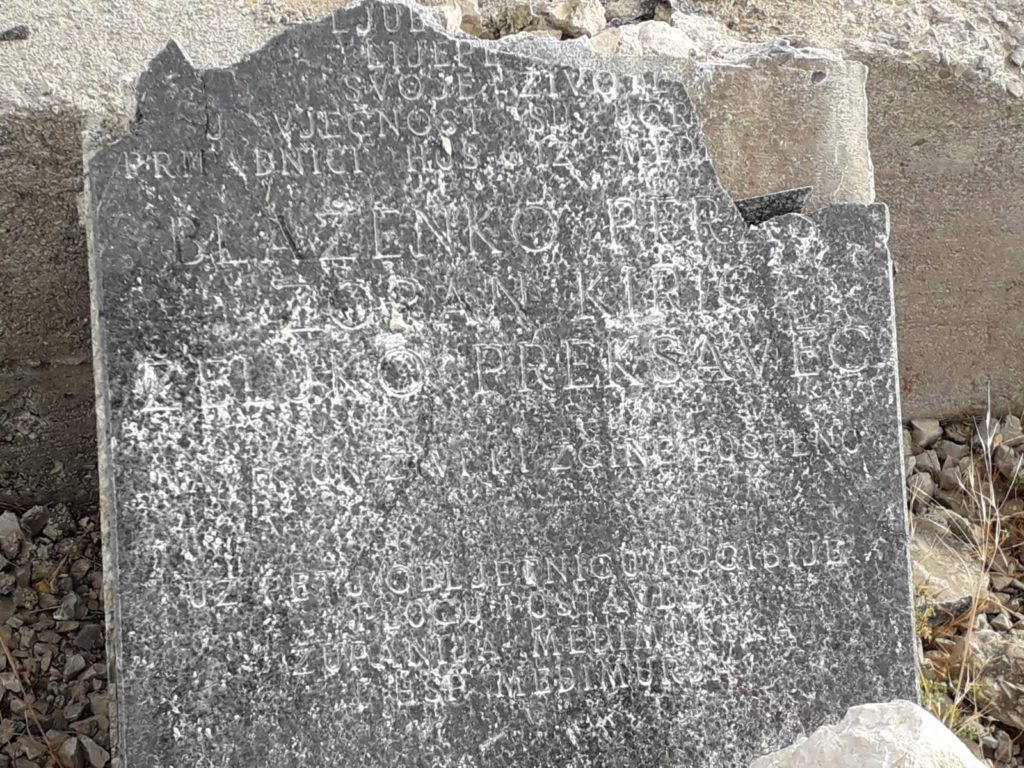 LJUB
LIJEPE
SVOJE ŽIVOTE
U VJEČNOST SU UGR
PRIPADNICI HOS IZ MEĐ
BLAŽENKO PERA
ZORAN KIRIĆ
ŽELJKO PREKSAVEC
POŠTENO
UZ PETU OBLJETNICU POGIBIJE
PLOČU POSTAVLJ
ŽUPANIJA MEĐIMURSKA
HSP MEĐIMURS